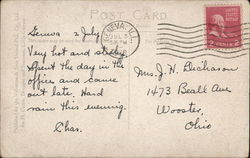 POST CARD
GENEVA, ILL.
JUL 3
Geneva 2 July
Very hot and sticky
Spent the day in the
office and came
out late. Hard
rain this evening.
Chas.
Mrs. J. H. Dickason
1473 Beall Ave
Wooster,
Ohio